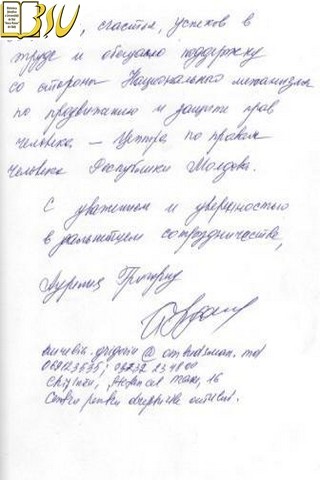 BSU
, счастья, успехов в
труде и обещаю поддержку
со стороны Национального механизма
по продвижению и защите прав
человека – Центра по правам
человека Республики Молдова.
С уважением и уверенностью
в дальнейшем сотрудничестве,
Григориу
@ombudsman.md
16
Centru pentru drepturile omului.